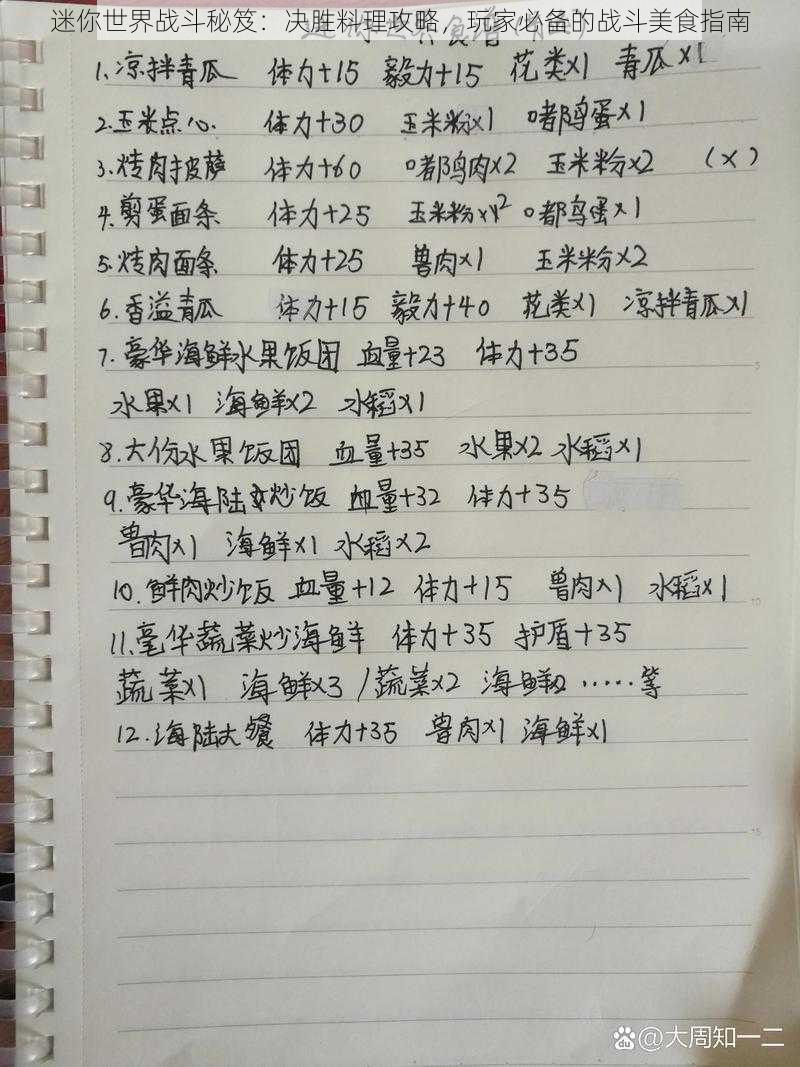 迷你世界战斗秘笈：决胜料理攻略，玩家必备的战斗美食指南
1.凉拌青瓜 体力+15 毅力+15 花类×1 青瓜×1
2.玉米点心. 体力+30 玉米粉×1 嘟鸟蛋×1
3.烤肉披萨 体力+60 嘟鸟肉×2 玉米粉×2 (×)
4.剪蛋面条 体力+25 玉米粉×2 嘟鸟蛋×1
5.烤肉面条 体力+25 兽肉×1 玉米粉×2
6.香溢青瓜 体力+15 毅力+40 花类×1 凉拌青瓜×1
7.豪华海鲜水果饭团 血量+23 体力+35
水果×1 海鲜×2 水稻×1
8.大份水果饭团 血量+35 水果×2 水稻×1
9.豪华海陆炒饭 血量+32 体力+35
兽肉×1 海鲜×1 水稻×2
10.鲜肉炒饭 血量+12 体力+15 兽肉×1 水稻×1
11.毫华蔬菜炒海鲜 体力+35 护盾+35
蔬菜×1 海鲜×3 /蔬菜×2 海鲜 ……等
12.海陆大餐 体力+35 兽肉×1 海鲜×1
5
10
15
@大周知一二